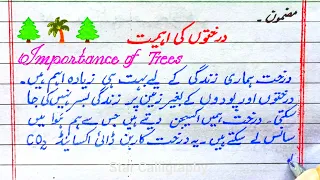 مضمون۔
درختوں کی اہمیت
Importance of Trees
درخت ہماری زندگی کے لیے بہت ہی زیادہ اہم ہیں۔
درختوں اور پودوں کے بغیر زمین پر زندگی بسر نہیں کی جا
سکتی۔ درخت ہمیں آکسیجن دیتے ہیں جس سے ہم ہوا میں
سانس لے سکتے ہیں۔ یہ درخت کاربن ڈائی آکسائیڈ CO2
Star Calligraphy